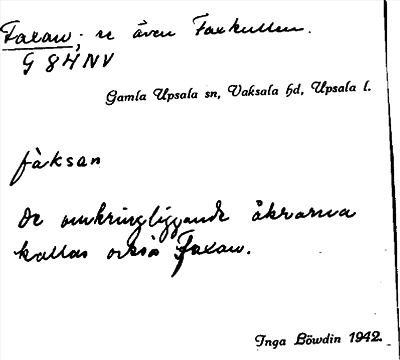 Faxan; se även Faxkullen.
G 84 NV
Gamla Upsala sn, Vaksala hd, Upsala l.
fàksan
De omkringliggande åkrarna
kallas också Faxan.
Inga Löwdin 1942.